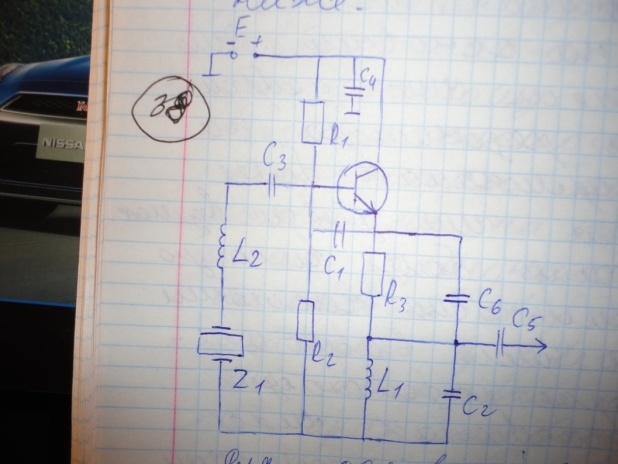 ниже.
E
- +
C4
R1
C3
NISSAN
C1
L2
R3
C6
C5
R2
L1
C2
Z1